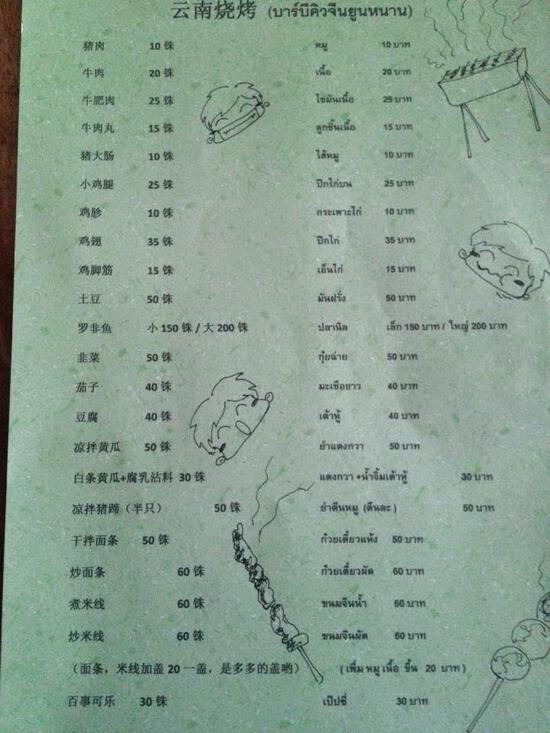 云南烧烤 (บาร์บีคิวจีนยูนหนาน)
猪肉 10 铢 หมู 10 บาท
牛肉 20 铢 เนื้อ 20 บาท
牛肥肉 25 铢 ไขมันเนื้อ 25 บาท
牛肉丸 15 铢 ลูกชิ้นเนื้อ 15 บาท
猪大肠 10 铢 ไส้หมู 10 บาท
小鸡腿 25 铢 ปีกไก่บน 25 บาท
鸡胗 10 铢 กระเพาะไก่ 10 บาท
鸡翅 35 铢 ปีกไก่ 35 บาท
鸡脚筋 15 铢 เอ็นไก่ 15 บาท
土豆 50 铢 มันฝรั่ง 50 บาท
罗非鱼 小 150 铢 / 大 200 铢 ปลานิล เล็ก 150 บาท / ใหญ่ 200 บาท
韭菜 50 铢 กุ๋ยฉ่าย 50 บาท
茄子 40 铢 มะเขือยาว 40 บาท
豆腐 40 铢 เต้าหู้ 40 บาท
凉拌黄瓜 50 铢 ยำแตงกวา 50 บาท
白条黄瓜+腐乳沾料 30 铢 แตงกวา +น้ำจิ้มเต้าหู้ 30 บาท
凉拌猪蹄（半只） 50 铢 ยำตีนหมู (ตีนละ ) 50 บาท
干拌面条 50 铢 ก๋วยเตี๋ยวแห้ง 50 บาท
炒面条 60 铢 ก๋วยเตี๋ยวผัด 60 บาท
煮米线 60 铢 ขนมจีนน้ำ 60 บาท
炒米线 60 铢 ขนมจีนผัด 60 บาท
（面条，米线加盖 20 一盖，是多多的盖哟） ( เพิ่ม หมู เนื้อ ชิ้น 20 บาท )
百事可乐 30 铢 เป๊ปซี่ 30 บาท